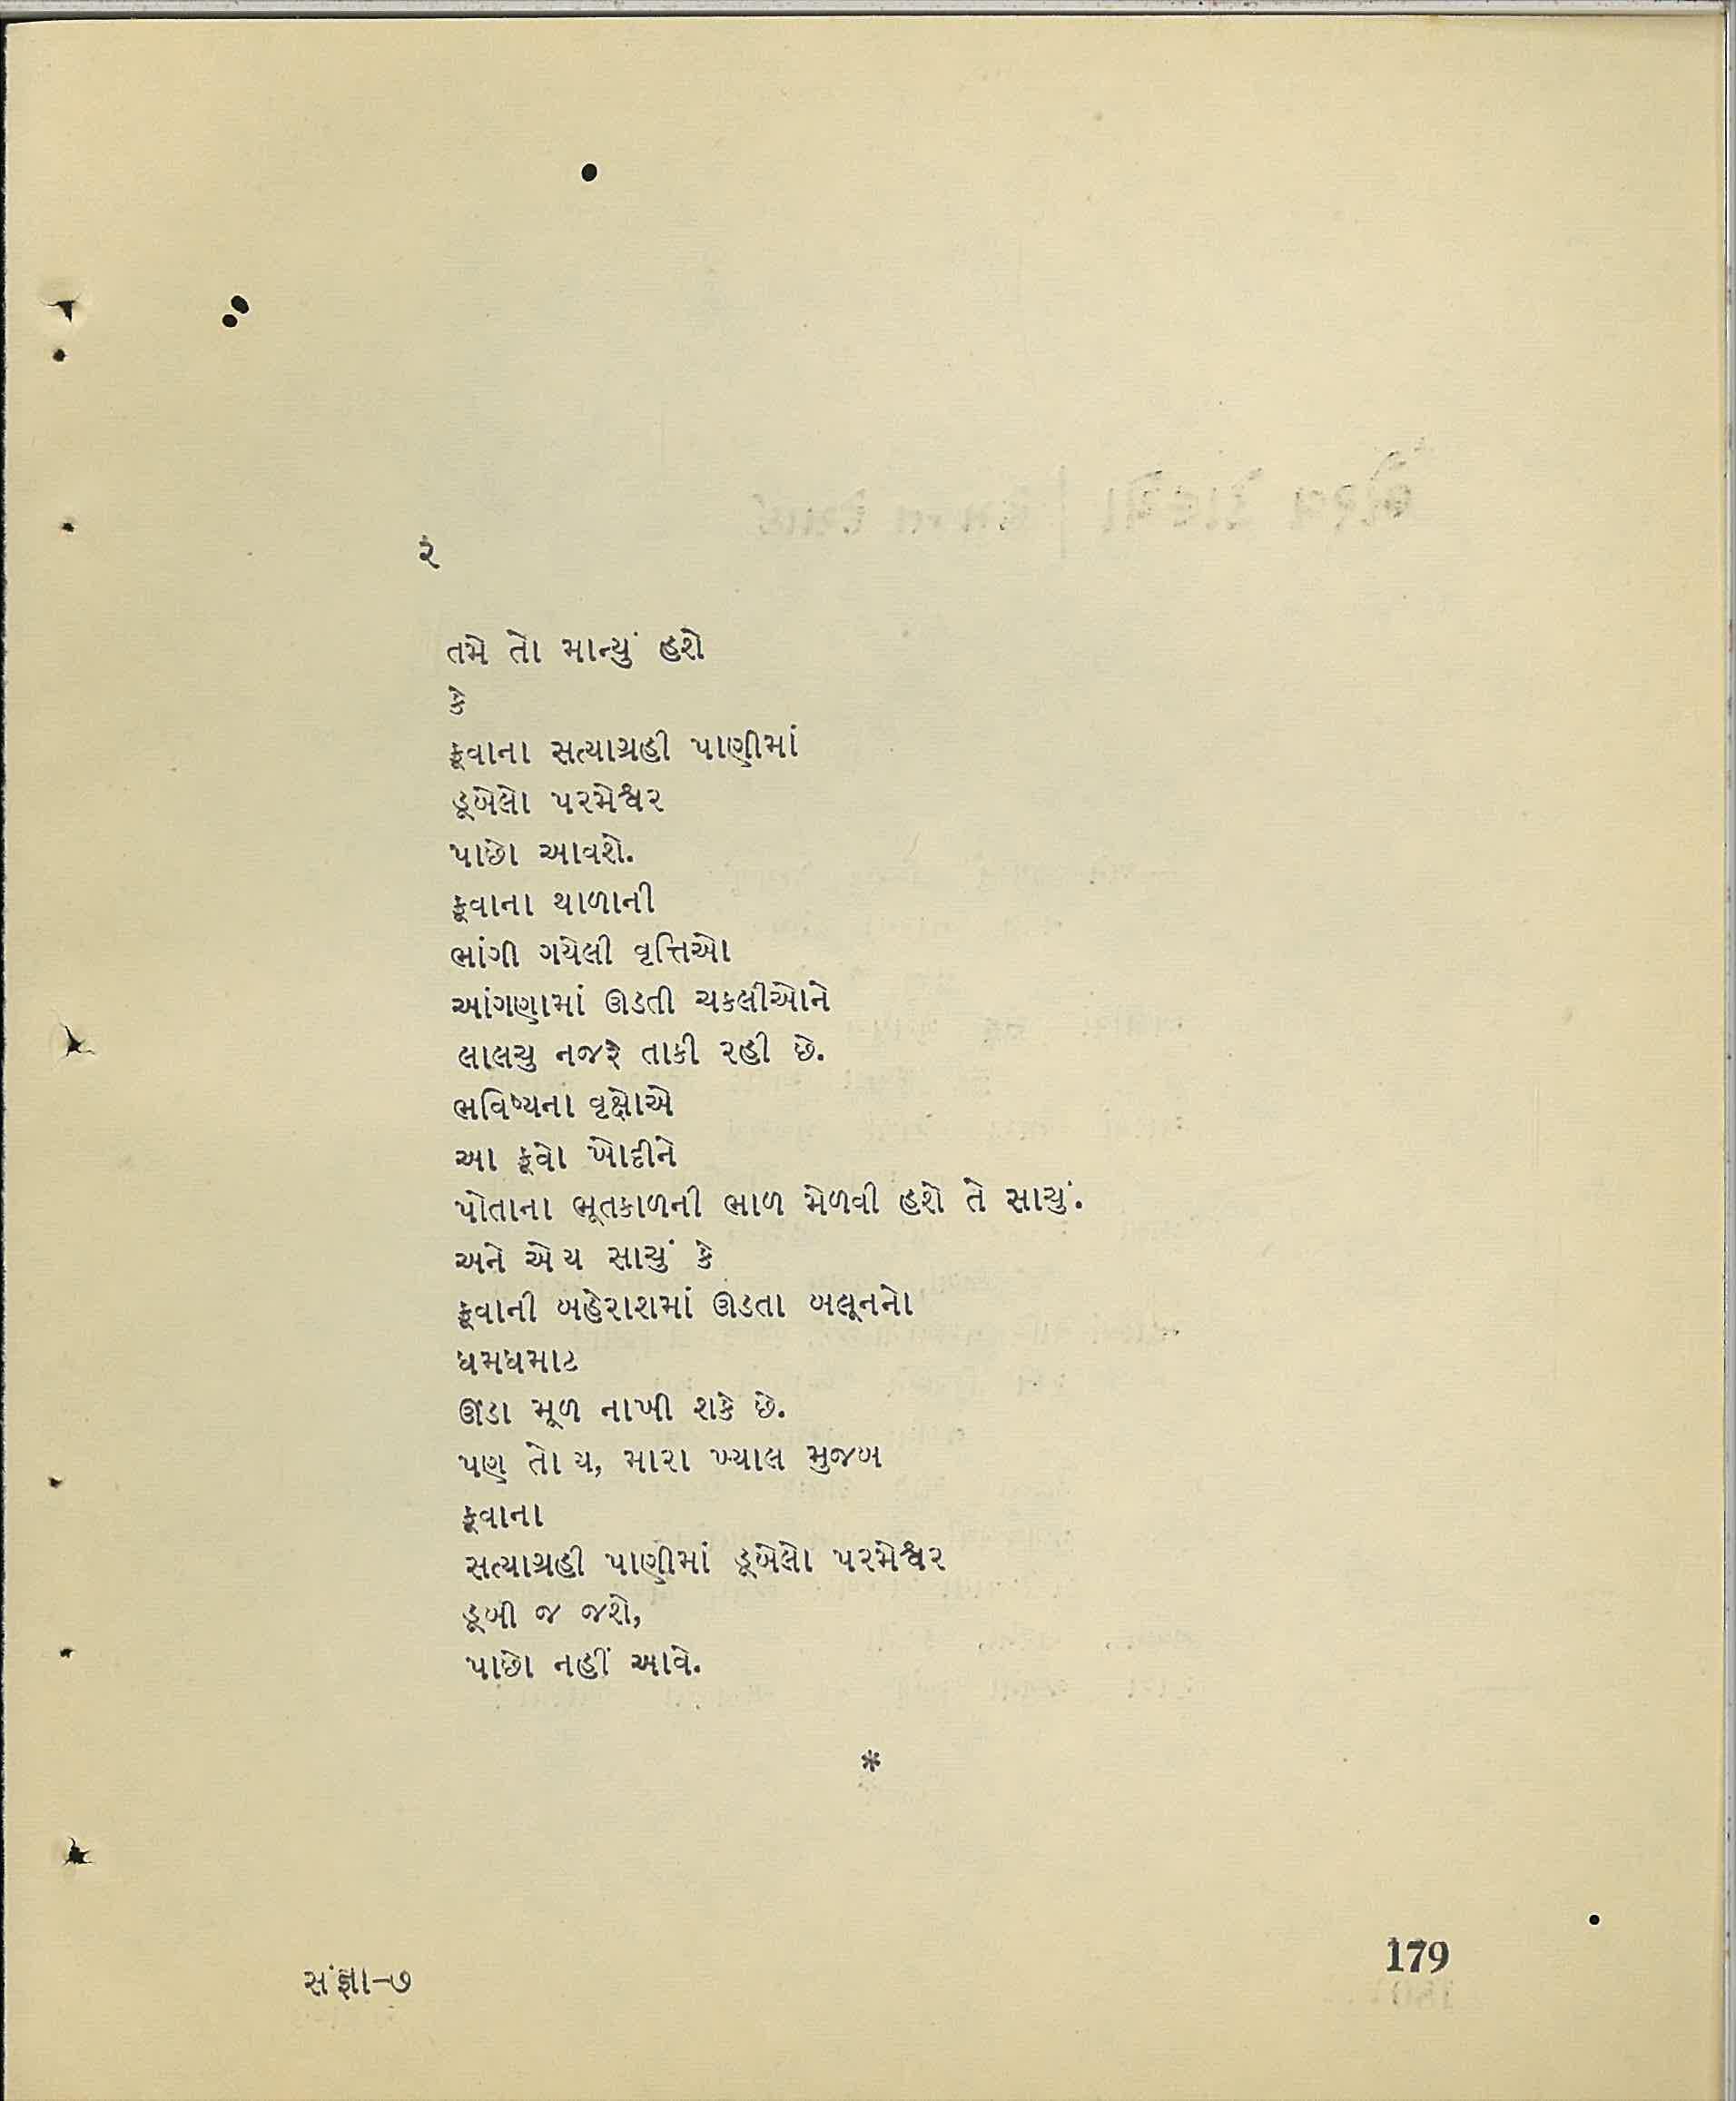 ૨
તમે તો માન્યું હશે
કે
કૂવાના સત્યાગ્રહી પાણીમાં
ડૂબેલો પરમેશ્વર
પાછો આવશે.
કૂવાના થાળાની
ભાંગી ગયેલી વૃત્તિઓ
આંગણામાં ઊડતી ચકલીઓને
લાલચુ નજરે તાકી રહી છે.
ભવિષ્યના વૃક્ષોએ
આ કૂવો ખોદીને
પોતાના ભૂતકાળની ભાળ મેળવી હશે તે સાચું.
અને એ ય સાચું કે
કૂવાની બહેરાશમાં ઊડતા બલૂનનો
ધમધમાટ
ઊંડા મૂળ નાખી શકે છે.
પણ તો ય, મારા ખ્યાલ મુજબ
કૂવાના
સત્યાગ્રહી પાણીમાં ડૂબેલો પરમેશ્વર
ડૂબી જ જશે,
પાછો નહીં આવે.
*
179
સંજ્ઞા-૭